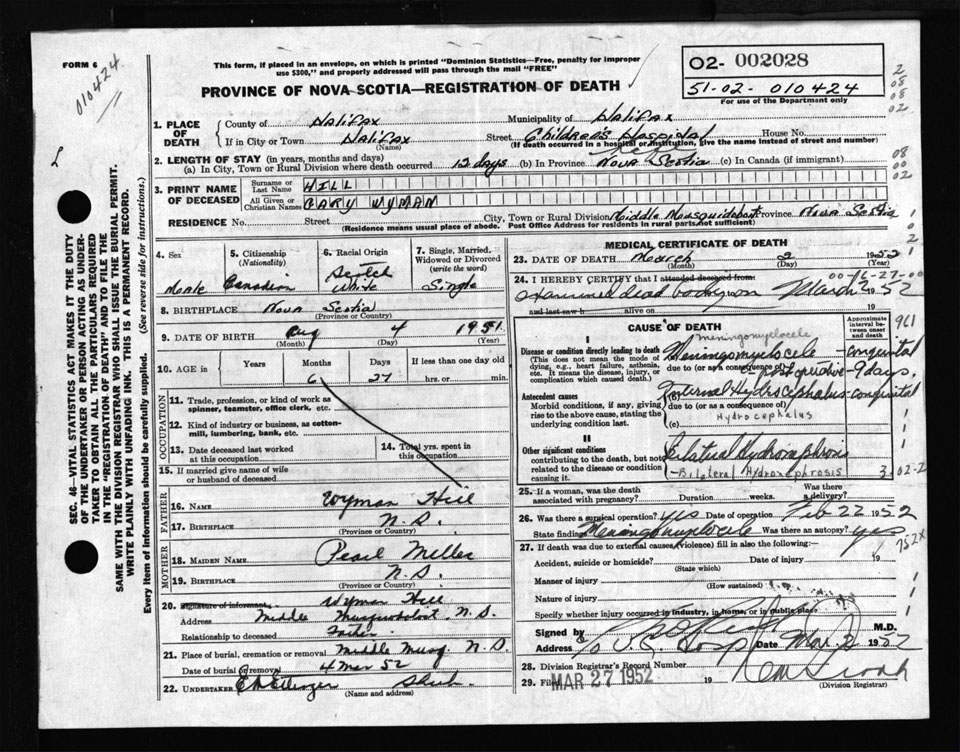 FORM 6
010424
This form, if placed in an envelope, on which is printed "Dominion Statistics—Free, penalty for improper
use $300," and properly addressed will pass through the mail "FREE"
PROVINCE OF NOVA SCOTIA—REGISTRATION OF DEATH
02- 002028
51-02- 010424
For use of the Department only
SEC. 46 VITAL STATISTICS ACT MAKES IT THE DUTY
OF THE UNDERTAKER OR PERSON ACTING AS UNDER-
TAKER TO OBTAIN ALL THE PARTICULARS REQUIRED
IN THE "REGISTRATION OF DEATH" AND TO FILE THE
SAME WITH THE DIVISION REGISTRAR WHO SHALL ISSUE THE BURIAL PERMIT.
WRITE PLAINLY WITH UNFADING INK. THIS IS A PERMANENT RECORD.
Every item of information should be carefully supplied. (See reverse side for instructions.)
1. PLACE OF DEATH
County of Halifax Municipality of Halifax
If in City or Town Halifax Street Children's Hospital House No.
(Name) (If death occurred in a hospital or institution, give the name instead of street and number)
2. LENGTH OF STAY (in years, months and days)
(a) In City, Town or Rural Division where death occurred 12 days (b) In Province Life Nova Scotia (c) In Canada (if immigrant)
3. PRINT NAME OF DECEASED
Surname or Last Name HILL
All Given or Christian Names GARY WYMAN
RESIDENCE No. Street City, Town or Rural Division Middle Musquodoboit Province Nova Scotia
(Residence means usual place of abode. Post Office Address for residents in rural parts not sufficient)
4. Sex Male
5. Citizenship (Nationality) Canadian
6. Racial Origin Scotch White
7. Single, Married, Widowed or Divorced (write the word) Single
8. BIRTHPLACE Nova Scotia
(Province or Country)
9. DATE OF BIRTH Aug 4 1951
(Month) (Day) (Year)
10. AGE in Years Months Days If less than one day old
6 27 hrs. or min.
OCCUPATION
11. Trade, profession, or kind of work as
spinner, teamster, office clerk, etc.
12. Kind of industry or business, as cotton-
mill, lumbering, bank, etc.
13. Date deceased last worked
at this occupation
14. Total yrs. spent in
this occupation
15. If married give name of wife
or husband of deceased
FATHER
16. NAME Wyman Hill
17. BIRTHPLACE N.S.
(Province or Country)
MOTHER
18. MAIDEN NAME Pearl Miller
19. BIRTHPLACE N.S.
(Province or Country)
20. Signature of informant Wyman Hill
Address Middle Musquodoboit, N.S.
Relationship to deceased Father
21. Place of burial, cremation or removal Middle Musq. N.S.
Date of burial or removal 4 Mar 52
22. UNDERTAKER
(Name and address)
MEDICAL CERTIFICATE OF DEATH
23. DATE OF DEATH March 2 1952
(Month) (Day) (Year)
24. I HEREBY CERTIFY that I attended deceased from:
00-16-27-00
Examined dead body on March 2 1952
and last saw h alive on 19
CAUSE OF DEATH
Approximate interval between onset and death
961
I
Disease or condition directly leading to death
(This does not mean the mode of dying, e.g., heart failure, asthenia, etc. It means the disease, injury, or complication which caused death.)
meningomyelocele
Meningomyelocele - congenital
due to (or as a consequence of)
- post operative - 9 days.
Antecedent causes
Morbid conditions, if any, giving rise to the above cause, stating the underlying condition last.
Internal Hydrocephalus congenital
due to (or as a consequence of)
Hydrocephalus
(c)
II
Other significant conditions
contributing to the death, but not related to the disease or condition causing it.
Bilateral Hydronephrosis
- Bilateral Hydronephrosis 3-02-2
25. If a woman, was the death associated with pregnancy? Duration weeks. Was there a delivery?
26. Was there a surgical operation? yes Date of operation Feb 22 1952
State finding Meningomyelocele Was there an autopsy? yes
752x
27. If death was due to external causes (violence) fill in also the following:
Accident, suicide or homicide? Date of injury 19
(State which)
Manner of injury
(How sustained)
Nature of injury
Specify whether injury occurred in industry, in home, or in public place
Signed by M.D.
Address c/o V.G. Hosp Date Mar. 2 1952
28. Division Registrar's Record Number
29. Filed MAR 27 1952 19
(Division Registrar)